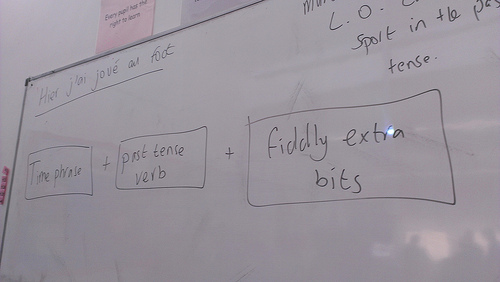 Every pupil has the
right to learn
L. O.
Sport in the
tense.
Hier j'ai joué au foot
Time phrase + past tense
verb + fiddly extra
bits